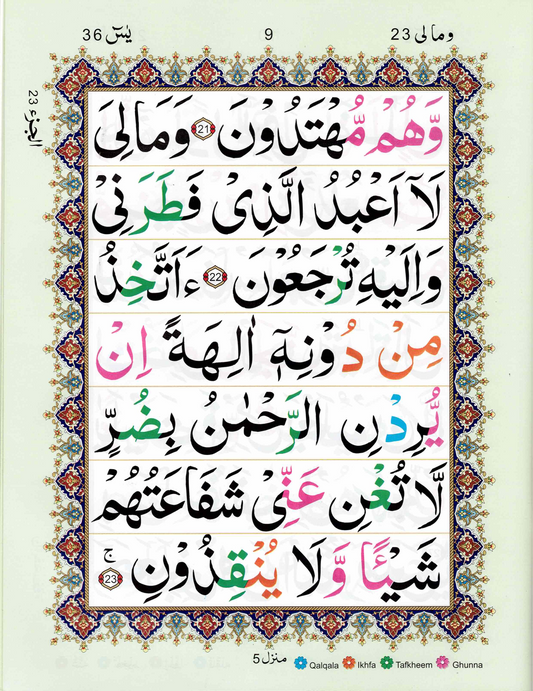 یٰسٓ 36 9 ومالی 23
الجزء 23
وَّهُمْ مُّهْتَدُوْنَ 21 وَمَا لِیَ
لَاۤ اَعْبُدُ الَّذِیْ فَطَرَنِیْ
وَاِلَیْهِ تُرْجَعُوْنَ 22 ءَاَتَّخِذُ
مِنْ دُوْنِهٖۤ اٰلِهَةً اِنْ
یُّرِدْنِ الرَّحْمٰنُ بِضُرٍّ
لَّا تُغْنِ عَنِّیْ شَفَاعَتُهُمْ
شَیْـًٔا وَّلَا یُنْقِذُوْنِ ۚ 23
منزل 5 Qalqala Ikhfa Tafkheem Ghunna